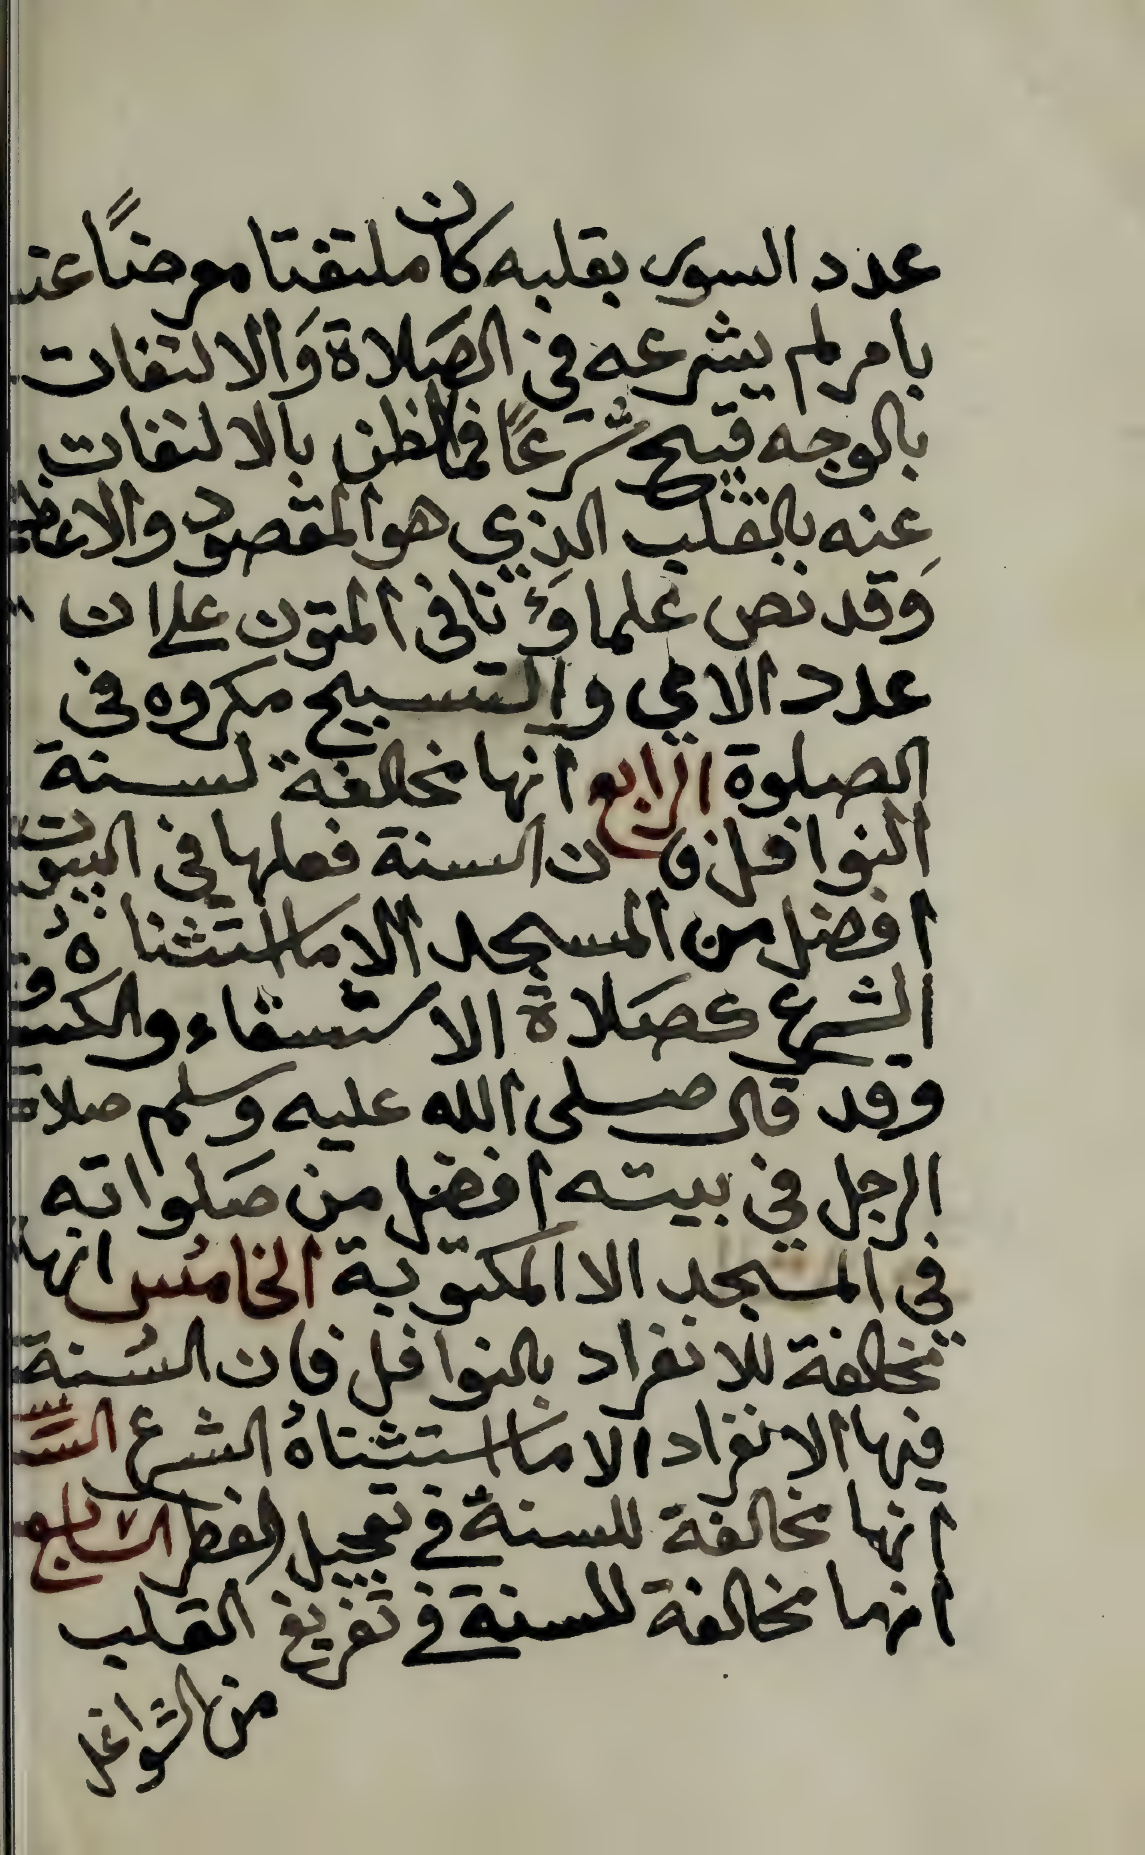 عدد السور بقلبه كان ملتفتا معرضاً عنه
بامر لم يشرعه في الصَلاة وَالالتفات
بالوجه قبيح شرعًا فما لظن بالالتفات
عنه بالقلب الذي هو المقصود والاعظم
وَقد نص علماوُنا فى المتون على ان
عدد الاي والتسبيح مكروه فى
الصلوة الرابع انها مخالفة لسنة
النوافل فان السنة فعلها في البيوت
افضل من المسجد الا ما استثناهُ
الشرع كصَلاة الاستسقاء والكسوف
وقد قال صلى الله عليه وسلم صلاة
الرجل في بيته افضل من صَلواته
فى المسجد الا المكتوبة الخامس انها
مخالفة للانفراد بالنوافل فان السُنة
فيها الانفراد الا ما استثناهُ الشرع السَّادس
انها مخالفة للسنة في تعجيل الفطر السابع
انها مخالفة للسنة في تفريغ القلب
من الشواغل